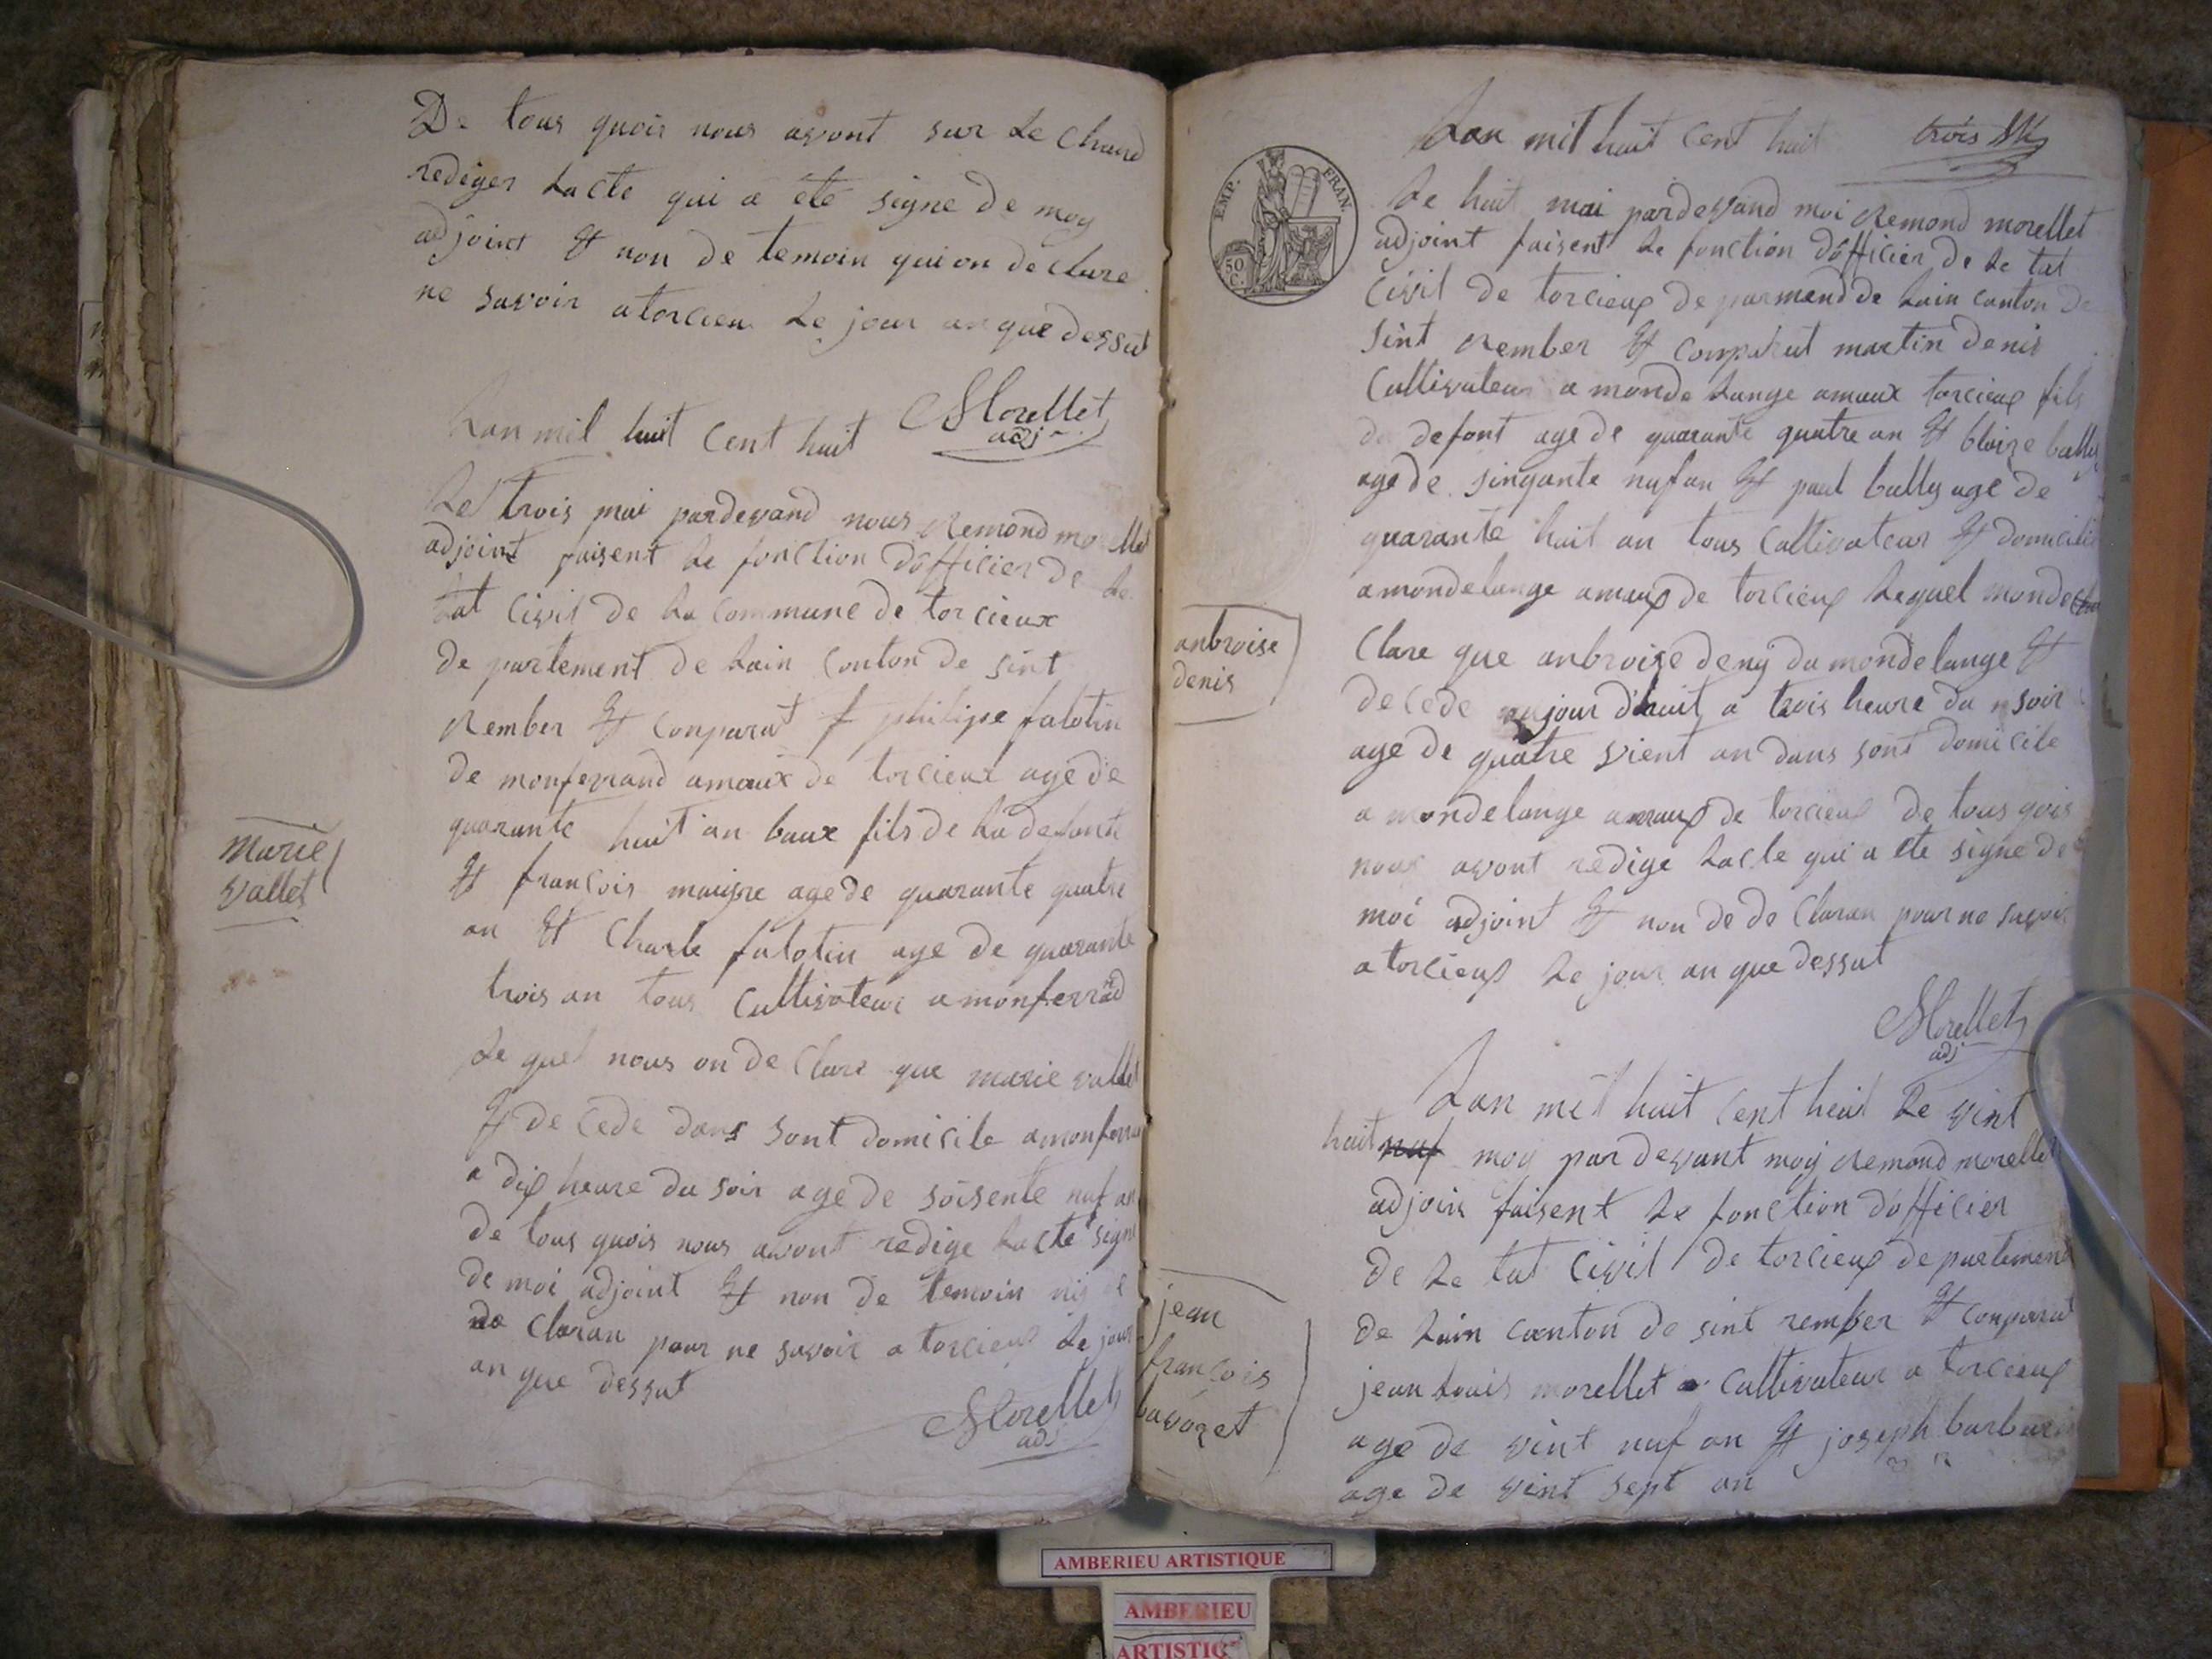 De tous quois nous avont sur Le Chand
rediger Lacte qui a été signe De moy
adjoint & non De temoin quion De Clare
ne savoir a torcieu Le jour an que Dessut
Morellet
adj
Lan mil huit Cent huit
Le trois mai pardevand nous Remond morellet
adjoint faisent Le fonction Dofficier De Le
tat Civil De La Commune De torcieux
De partement De Lain Conton De sint
Rember & Conparut f philipe falotin
De monferrand amaux De torcieux age De
quarante huit an baux fils De La Defonte
& francois maigre age De quarante quatre
an & Charle falotin age De quarante
trois an tous Cultivateur a monferrand
Le quel nous on De Clare que marie vallet
& De Cede Dans sont Domicile a monferran
a dix heure Du soir age De soisente nuf an
De tous quois nous avont redige Lacte signe
De moi adjoint & non De temoin
De Claran pour ne savoir a torcieux Le jour
an que Dessut
Morellet
adj
Marie
vallet
Lan mil huit Cent huit
trois
EMP. FRAN.
50 C.
Le huit mai pardevand moi Remond morellet
adjoint faisent Le fonction Dofficier De Le tat
Civil De torcieux De parmend De Lain Canton De
Sint Rember & Conparut martin Denis
Cultivateur a monde Lange amaux torcieux fils
du defont age de quarante quatre an & blaize bally
age De singante nuf an & paul bally age De
quarante huit an tous Cultivateur & Domicilie
a mondelange amaux De torcieux Lequel monde
Clare que anbroise Deny Du mondelange &
De Cede aujour Dhuit a trois heure Du soir
age De quatre vient an Dans sont Domicile
a mondelange amaux De torcieux De tous qois
nous avont redige Lacte qui a ete signe De
moi adjoint & non De De Claran pour ne savoir
a torcieux Le jour an que Dessut
Morellet
adj
anbroise
denis
Lan mil huit Cent heuit Le vint
huit nuf moy par Devant moy Remond morellet
adjoin faisent Le fonction Dofficier
De Le tat Civil De torcieux De partement
De Lain Canton De sint rember & Conparut
jean Louis morellet Cultivateur a torcieux
age De vint nuf an & joseph barbarin
age De vint sept an
jean
francois
bavozet
AMBERIEU ARTISTIQUE
AMBERIEU
ARTISTIQ